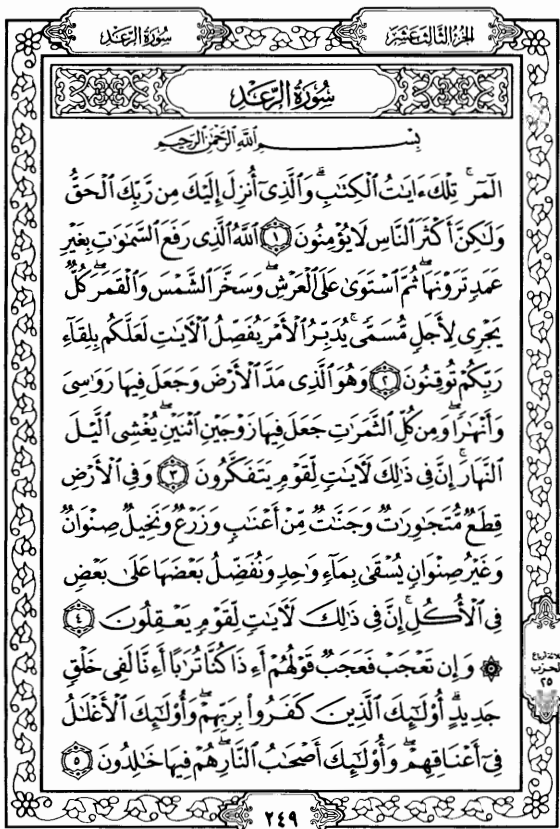 سُورَةُ الرَّعْدِ
الجُزْءُ الثَّالِثَ عَشَرَ
سُورَةُ الرَّعْدِ
بِسْمِ اللَّهِ الرَّحْمَٰنِ الرَّحِيمِ
الٓمٓر ۚ تِلْكَ ءَايَٰتُ الْكِتَٰبِ ۗ وَالَّذِىٓ أُنزِلَ إِلَيْكَ مِن رَّبِّكَ الْحَقُّ
وَلَٰكِنَّ أَكْثَرَ النَّاسِ لَا يُؤْمِنُونَ ١ اللَّهُ الَّذِى رَفَعَ السَّمَٰوَٰتِ بِغَيْرِ
عَمَدٍ تَرَوْنَهَا ۖ ثُمَّ اسْتَوَىٰ عَلَى الْعَرْشِ ۖ وَسَخَّرَ الشَّمْسَ وَالْقَمَرَ ۖ كُلٌّ
يَجْرِى لِأَجَلٍ مُّسَمًّى ۚ يُدَبِّرُ الْأَمْرَ يُفَصِّلُ الْءَايَٰتِ لَعَلَّكُم بِلِقَآءِ
رَبِّكُمْ تُوقِنُونَ ٢ وَهُوَ الَّذِى مَدَّ الْأَرْضَ وَجَعَلَ فِيهَا رَوَٰسِىَ
وَأَنْهَٰرًا ۖ وَمِن كُلِّ الثَّمَرَٰتِ جَعَلَ فِيهَا زَوْجَيْنِ اثْنَيْنِ ۖ يُغْشِى الَّيْلَ
النَّهَارَ ۚ إِنَّ فِى ذَٰلِكَ لَءَايَٰتٍ لِّقَوْمٍ يَتَفَكَّرُونَ ٣ وَفِى الْأَرْضِ
قِطَعٌ مُّتَجَٰوِرَٰتٌ وَجَنَّٰتٌ مِّنْ أَعْنَٰبٍ وَزَرْعٌ وَنَخِيلٌ صِنْوَانٌ
وَغَيْرُ صِنْوَانٍ يُسْقَىٰ بِمَآءٍ وَٰحِدٍ وَنُفَضِّلُ بَعْضَهَا عَلَىٰ بَعْضٍ
فِى الْأُكُلِ ۚ إِنَّ فِى ذَٰلِكَ لَءَايَٰتٍ لِّقَوْمٍ يَعْقِلُونَ ٤
۞ وَإِن تَعْجَبْ فَعَجَبٌ قَوْلُهُمْ أَءِذَا كُنَّا تُرَٰبًا أَءِنَّا لَفِى خَلْقٍ
جَدِيدٍ ۗ أُو۟لَٰٓئِكَ الَّذِينَ كَفَرُوا۟ بِرَبِّهِمْ ۖ وَأُو۟لَٰٓئِكَ الْأَغْلَٰلُ
فِىٓ أَعْنَاقِهِمْ ۖ وَأُو۟لَٰٓئِكَ أَصْحَٰبُ النَّارِ ۖ هُمْ فِيهَا خَٰلِدُونَ ٥
الحزب
٢٥
٢٤٩